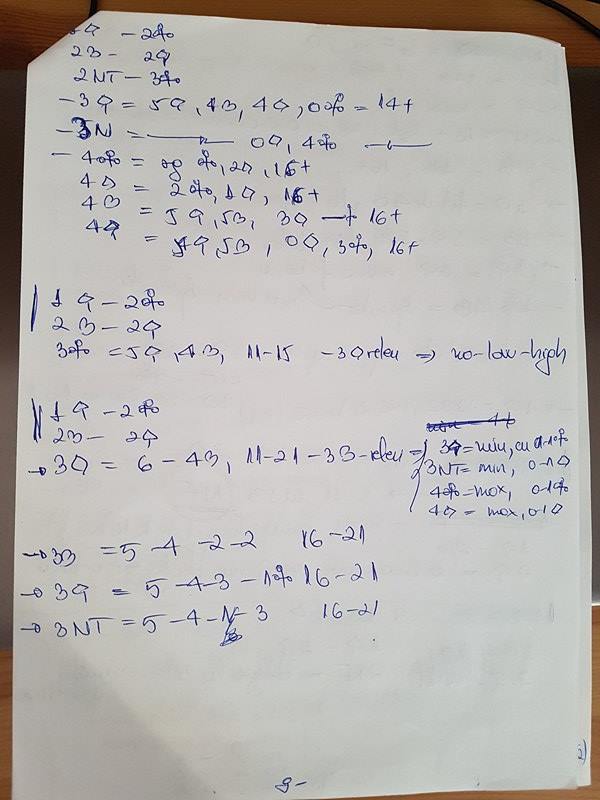 1♠ - 2♣
2♥ - 2♠
2NT - 3♣
- 3♠ = 5♠, 4♥, 4♦, 0♣ = 14+
- 3N = —"— 0♦, 4♣ —"—
- 4♣ = ♣, 2♦, 16+
4♦ = 2♣, 1♦, 16+
4♥ = 5♠, 5♥, 3♦ - 16+
4♠ = 5♠, 5♥, 0♦, 3♣, 16+
1♠ - 2♣
2♥ - 2♠
3♣ = 5♠, 4♥, 11-15 - 3♦ releu => no-low-high
1♠ - 2♣
2♥ - 2♠
→ 3♦ = 6 - 4♥, 11-21 - 3♥ - releu =>
3♠ = min, cu 0-1♣
3NT = min, 0-1♦
4♣ = max, 0-1♣
4♦ = max, 0-1♦
→ 3♥ = 5 - 4 - 2 - 2 16-21
→ 3♠ = 5 - 4 - 3 - 1♣ 16-21
→ 3NT = 5 - 4 - 3 16-21
2)